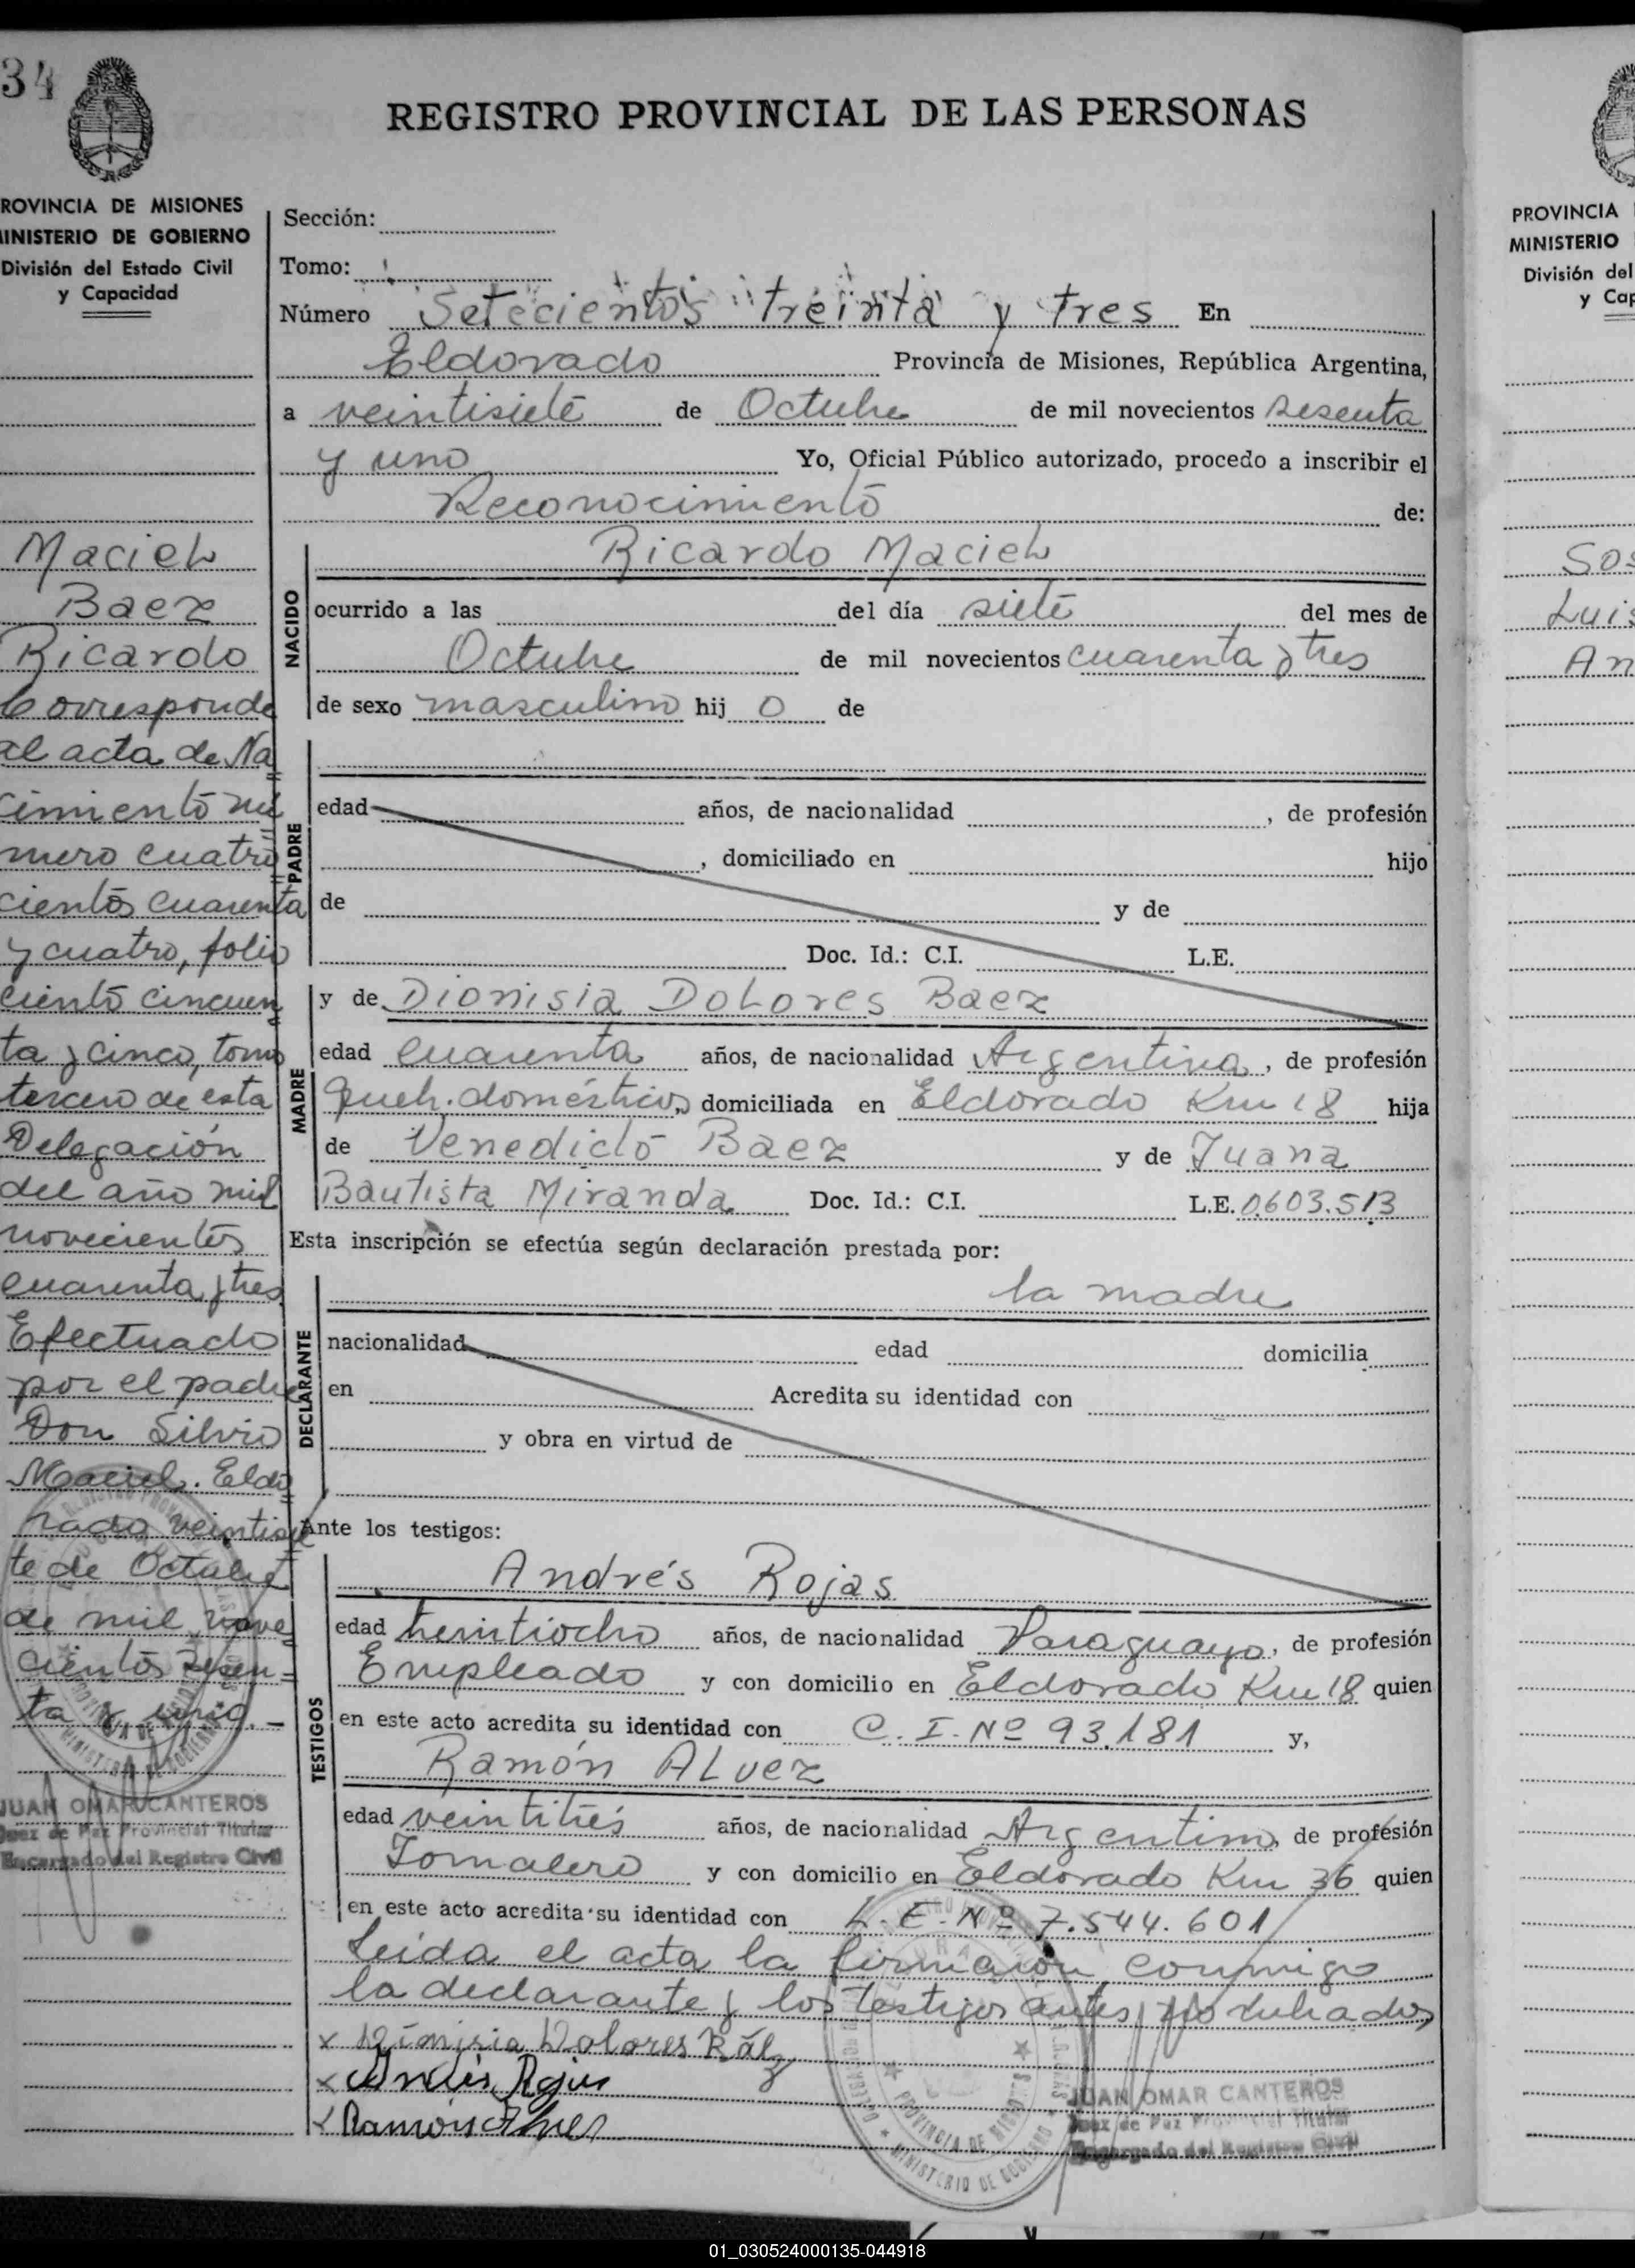 34
REGISTRO PROVINCIAL DE LAS PERSONAS
ROVINCIA DE MISIONES
INISTERIO DE GOBIERNO
División del Estado Civil
y Capacidad
Maciel
Baez
Ricardo
Corresponde
al acta de Na
cimiento nú
mero cuatro
cientos cuarenta
y cuatro, folio
ciento cincuen
ta y cinco, tomo
tercero de esta
Delegación
del año mil
novecientos
cuarenta y tres
Efectuado
por el padre
Don Silvio
Maciel. Eldo
rado veintisie
te de Octubre
de mil nove
cientos sesen=
ta y uno.-
JUAN OMAR CANTEROS
Juez de Paz Provincial Titular
Encargado del Registro Civil
Sección:
Tomo:
Número Setecientos treinta y tres En
Eldorado Provincia de Misiones, República Argentina,
a veintisiete de Octubre de mil novecientos sesenta
y uno Yo, Oficial Público autorizado, procedo a inscribir el
Reconocimiento de:
Ricardo Maciel
NACIDO
ocurrido a las del día siete del mes de
Octubre de mil novecientos cuarenta y tres
de sexo masculino hij o de
PADRE
edad años, de nacionalidad , de profesión
, domiciliado en hijo
de y de
Doc. Id.: C.I. L.E.
MADRE
y de Dionisia Dolores Baez
edad cuarenta años, de nacionalidad Argentina, de profesión
Queh. domésticos, domiciliada en Eldorado Km 18 hija
de Venedicto Baez y de Juana
Bautista Miranda Doc. Id.: C.I. L.E. 0.603.513
Esta inscripción se efectúa según declaración prestada por:
la madre
DECLARANTE
nacionalidad edad domicilia
en Acredita su identidad con
y obra en virtud de
Ante los testigos:
TESTIGOS
Andrés Rojas
edad años, de nacionalidad Paraguayo, de profesión
Empleado y con domicilio en Eldorado Km 18 quien
en este acto acredita su identidad con C. I. Nº 93.181 y,
Ramón Alvez
edad veintitrés años, de nacionalidad Argentino, de profesión
Jornalero y con domicilio en Eldorado Km 36 quien
en este acto acredita su identidad con L. E. Nº 7.544.601
Leída el acta la firmaron conmigo
la declarante y los testigos antes
x Dionisia Dolores Báez
x Andrés Rojas
x Ramón Alvez
JUAN OMAR CANTEROS
Juez de Paz Provincial Titular
Encargado del Registro Civil
PROVINCIA
MINISTERIO
División del
y Cap
Sos
Luis
An
01_030524000135-044918